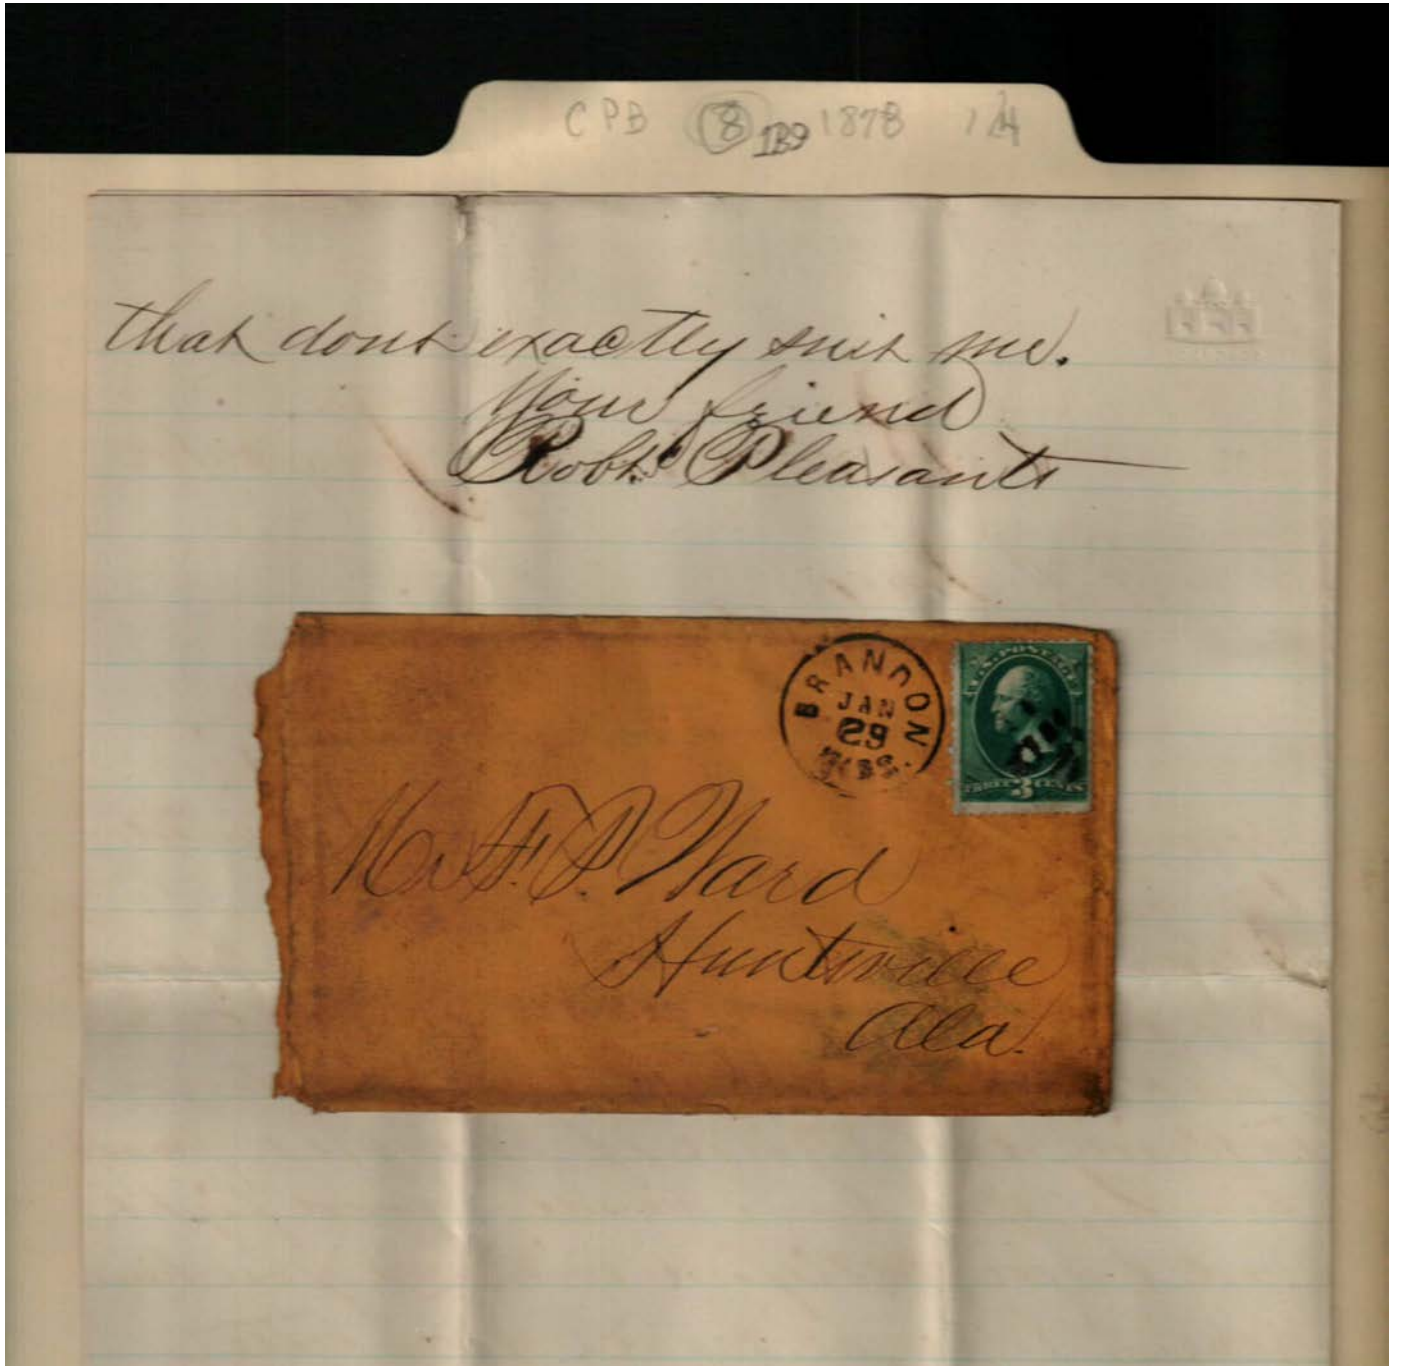 CPB 8 1B9 1878
that dont exactly suit me.
Your friend
Robt. Pleasants
BRANDON
JAN
29
MISS.
U.S. POSTAGE
THREE 3 CENTS
Mr. F. P. Ward
Huntsville
Ala.